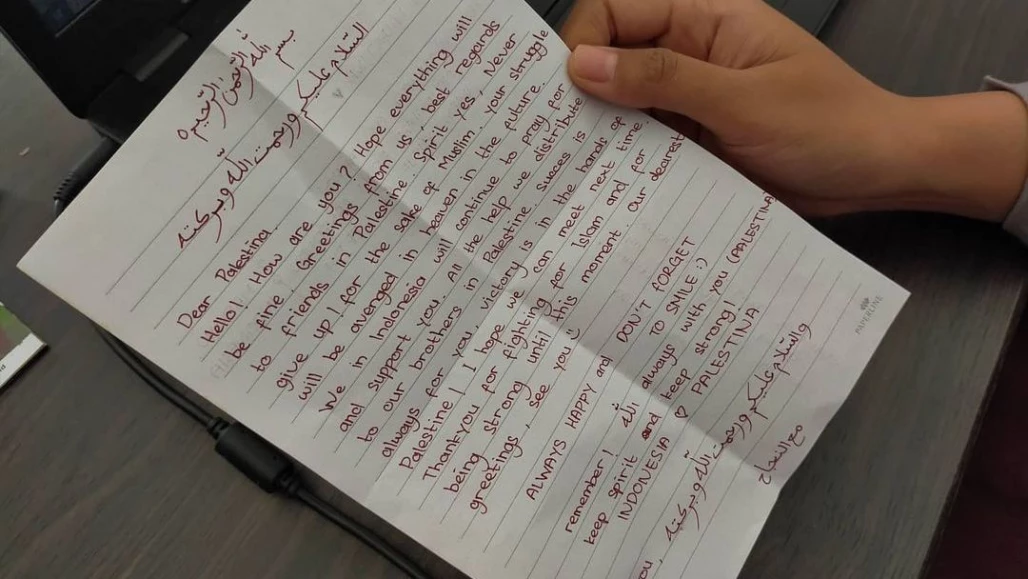 بسم الله الرحمن الرحيم ○
السلام عليكم ورحمت الله وبركته
Dear Palestina.
Hello! How are you? Hope everything will
be fine. Greetings from us, best regards
to friends in Palestine. Spirit yes, Never
give up! for the sake of Muslim. your struggle
will be avenged in heaven in the future.
We in Indonesia will continue to pray for
and support you. All the help we distribute
to our brothers in Palestine. succes is
always for you, victory is in the hands of
Palestine! I hope we can meet next time.
Thankyou for fighting for Islam and for
being strong until this moment. our dearest
greetings, see you"
ALWAYS HAPPY and DON'T FORGET
TO SMILE :)
remember! الله always with you (PALESTINA)
keep spirit and keep strong!
INDONESIA ♡ PALESTINA
والسلام عليكم ورحمت الله وبركته
مع النجاح
PAPERLINE